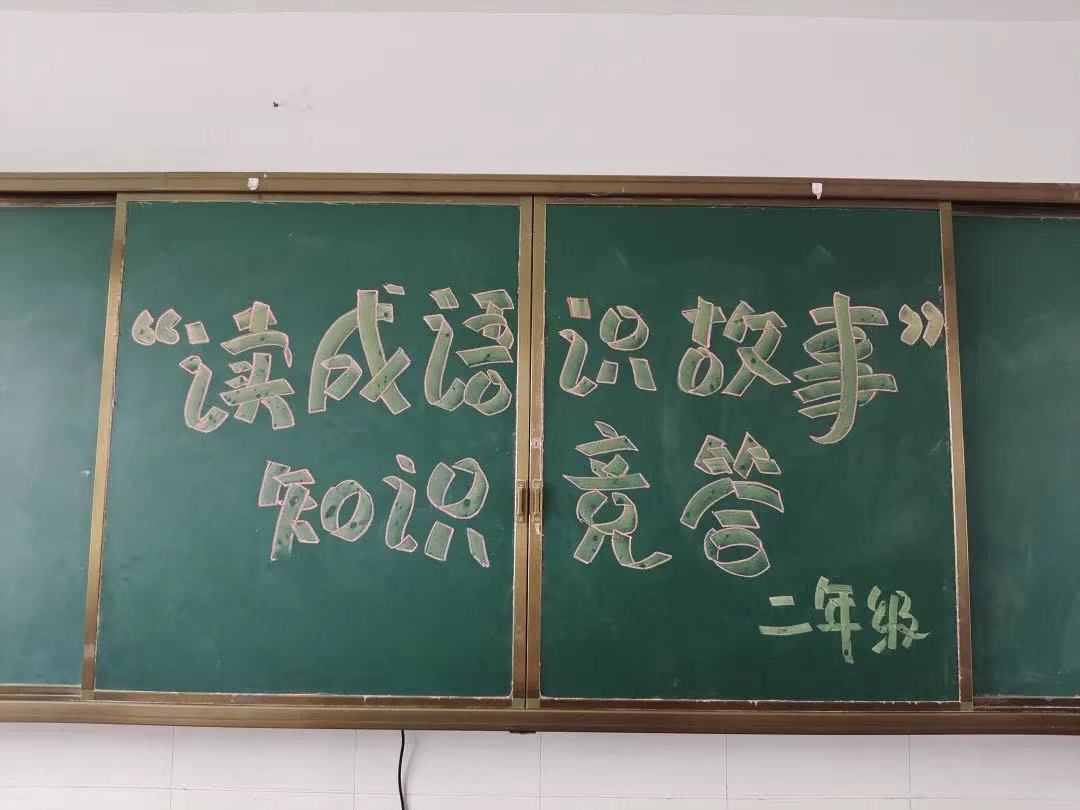 “读成语识故事”
知识竞答
二年级